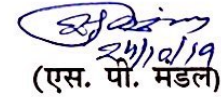 24/10/19
(एस. पी. मंडल)